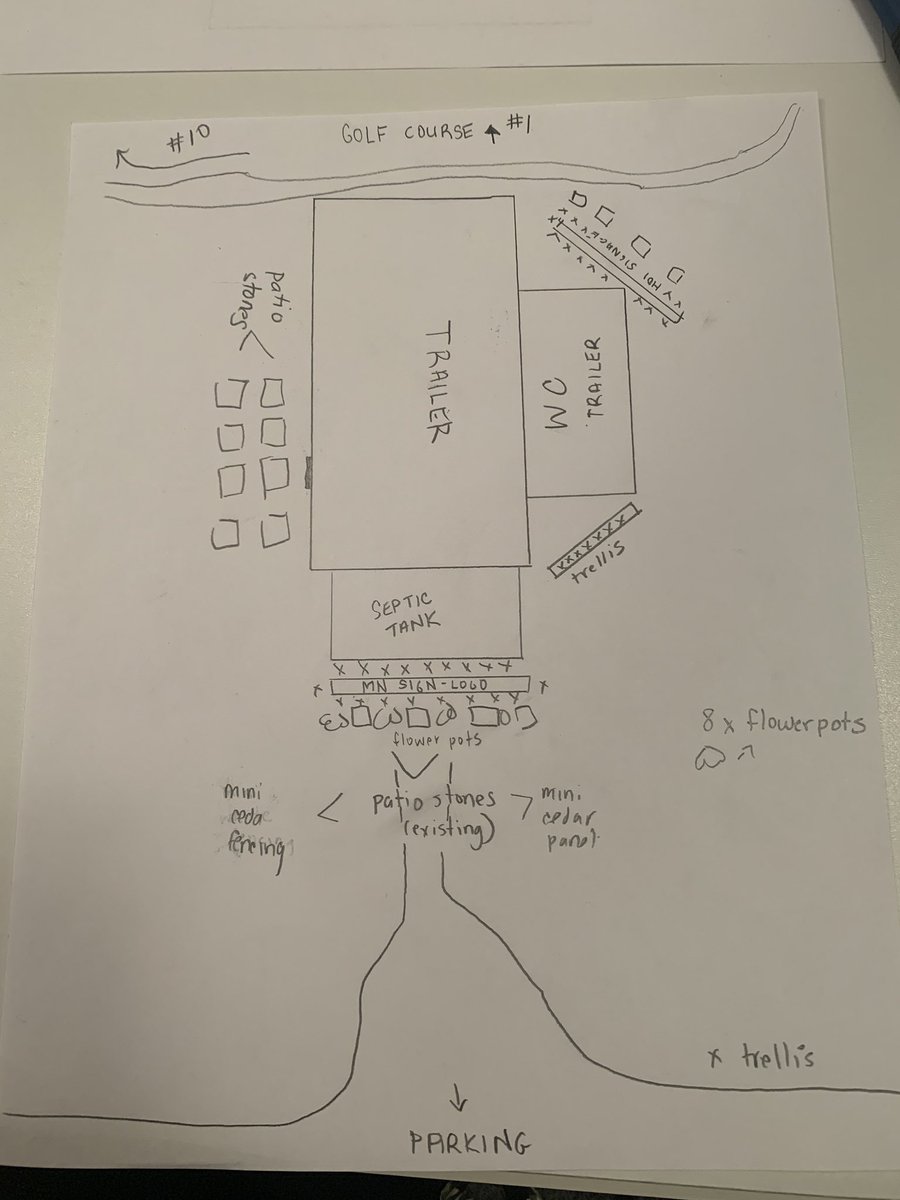 #10
GOLF COURSE ↑ #1
patio
stones
TRAILER
WC
TRAILER
HOI SIGNAGE
trellis
SEPTIC
TANK
x x x x x x x x x
x MN SIGN-LOGO x
flower pots
8 x flowerpots
mini
ceda
fencing
patio stones
(existing)
mini
cedar
panel
x trellis
PARKING